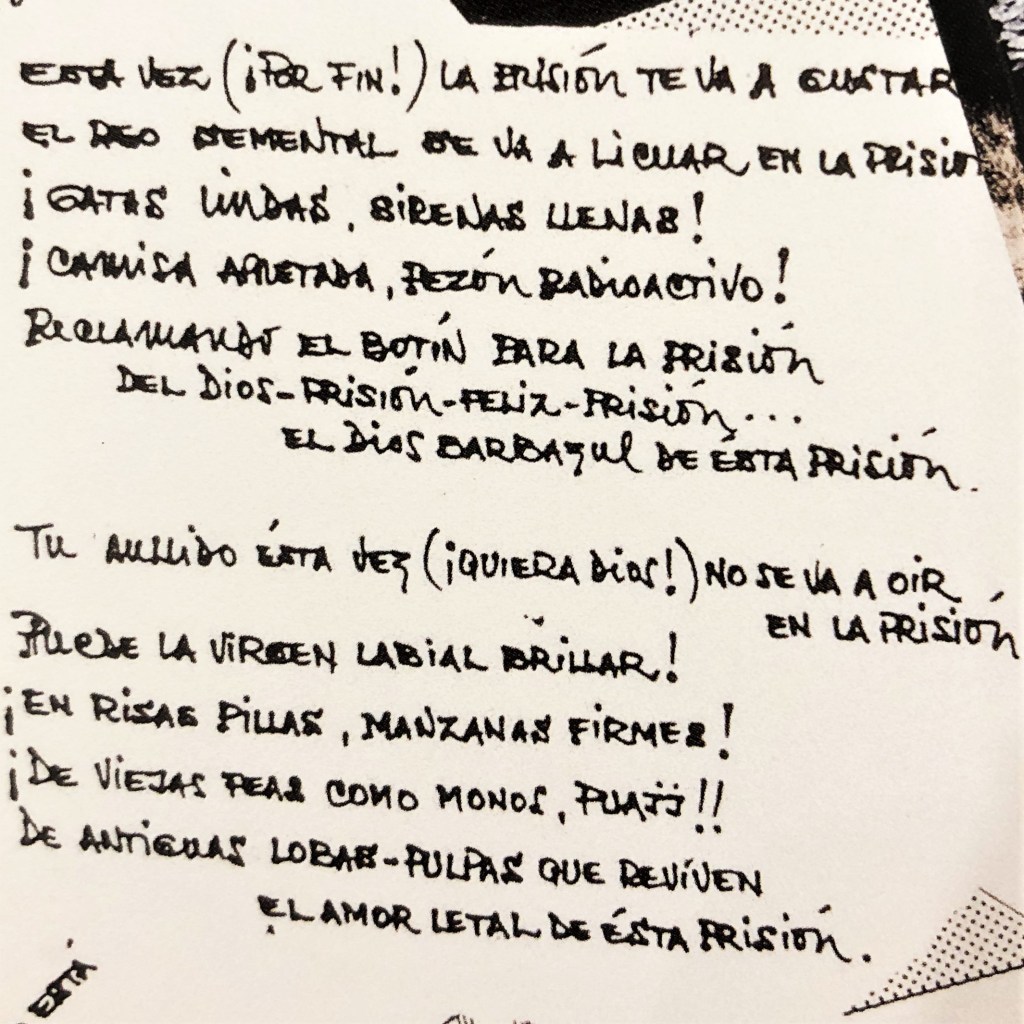 ESTA VEZ (¡POR FIN!) LA PRISIÓN TE VA A GUSTAR
EL REO DEMENTAL SE VA A LICUAR EN LA PRISIÓN
¡GATAS LINDAS, SIRENAS LLENAS!
¡CAMISA APRETADA, PEZÓN RADIOACTIVO!
RECLAMANDO EL BOTÍN PARA LA PRISIÓN
DEL DIOS-PRISIÓN-FELIZ-PRISIÓN...
EL DIOS BARBAZUL DE ÉSTA PRISIÓN.
TU AULLIDO ÉSTA VEZ (¡QUIERA DIOS!) NO SE VA A OIR
EN LA PRISIÓN
PUEDE LA VIRGEN LABIAL BRILLAR!
¡EN RISAS PILLAS, MANZANAS FIRMES!
¡DE VIEJAS FEAS COMO MONOS, PUAJJ!!
DE ANTIGUAS LOBAS-PULPAS QUE REVIVEN
EL AMOR LETAL DE ÉSTA PRISIÓN.
ESTÁ